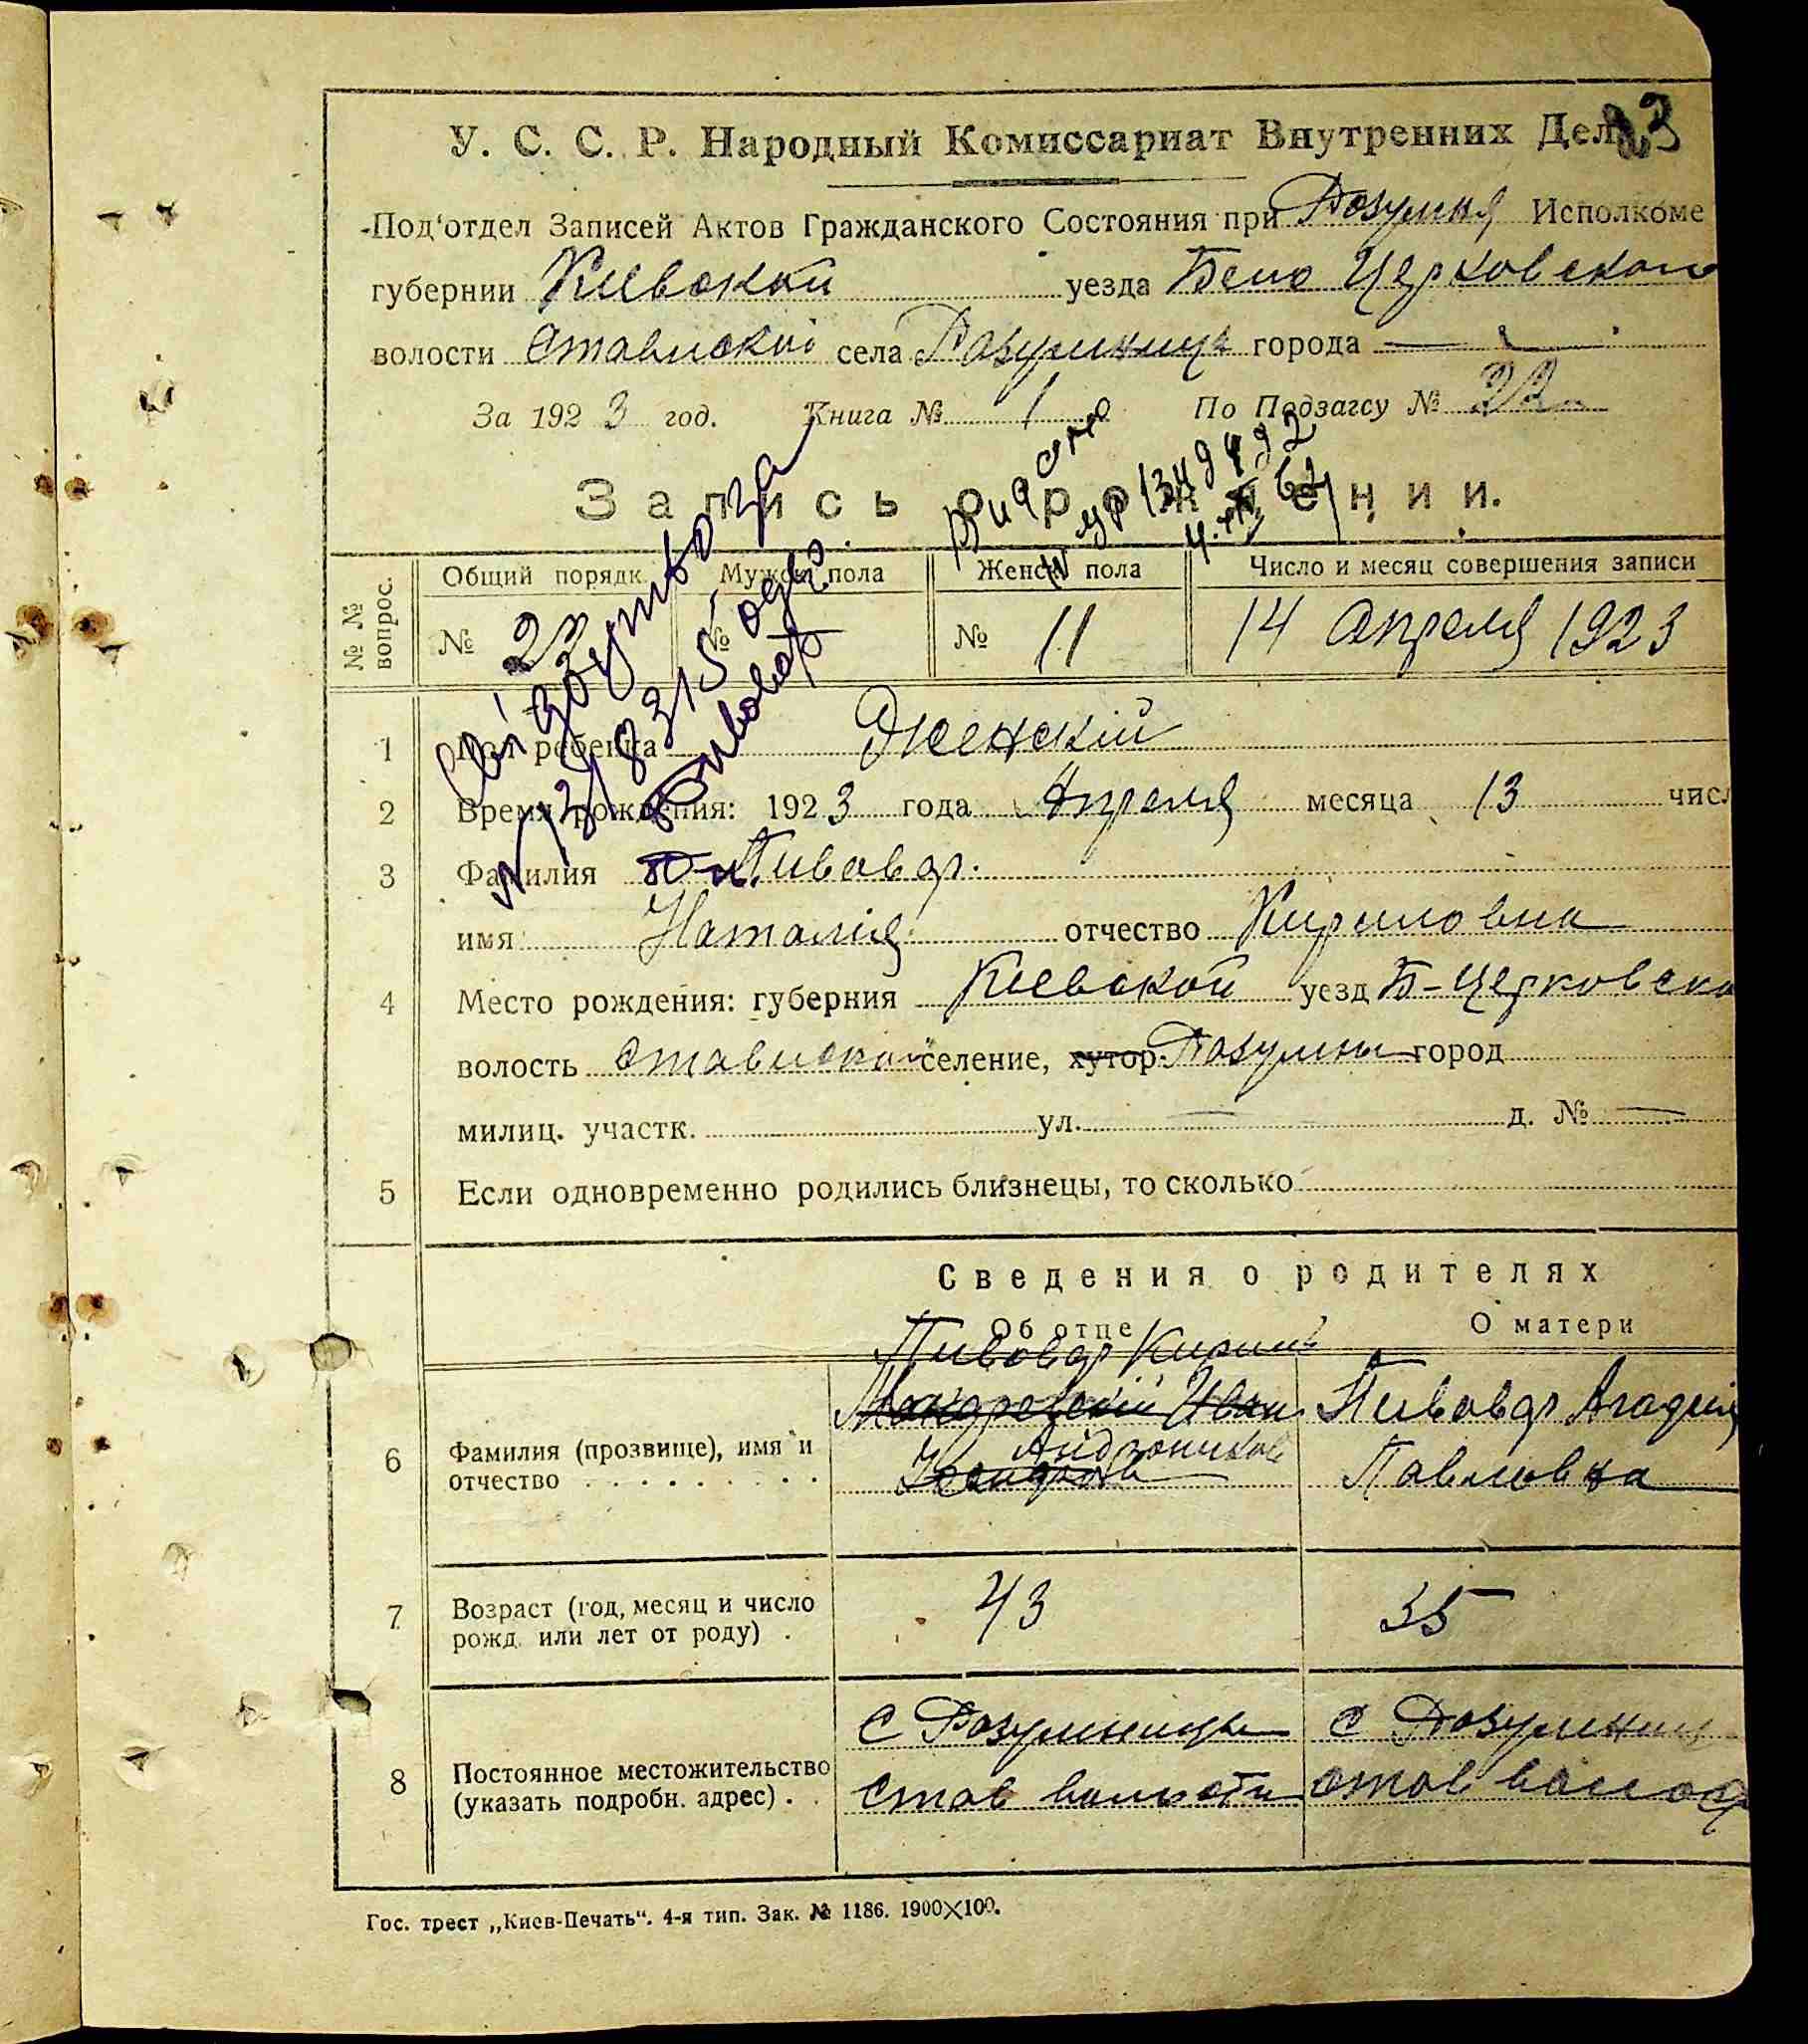 23
У. С. С. Р. Народный Комиссариат Внутренних Дел
Под'отдел Записей Актов Гражданского Состояния при Розумня Исполкоме
губернии Киевской уезда Бело Церковского
волости Ставиской села Розумниць города —
За 1923 год. Книга № 1 По Подзагсу № 22
Запись о рождении.
№ № вопрос. Общий порядк. Мужск. пола Женск. пола Число и месяц совершения записи
№ 22 № № 11 14 Апреля 1923
1 Пол ребенка Женскій
2 Время рождения: 1923 года Апреля месяца 13 числ
3 Фамилия Пивовар.
имя Наталія отчество Кириловна
4 Место рождения: губерния Киевской уезд Б-Церковско
волость Ставиской селение, хутор Розумни город
милиц. участк. ул. — д. № —
5 Если одновременно родились близнецы, то сколько
Свідоцтво за
№ 1318315 одр.
Пивовар
Сведения о родителях
Об отце О матери
Пивовар Кирил
6 Фамилия (прозвище), имя и отчество
Макаревский Иван Пивовар Агафия
Андроников Павловна
7 Возраст (год, месяц и число рожд. или лет от роду) . 43 35
8 Постоянное местожительство (указать подробн. адрес) . .
С Розумницы С Розумниц
Став волости став волос
Гос. трест „Киев-Печать“. 4-я тип. Зак. № 1186. 1900×100.